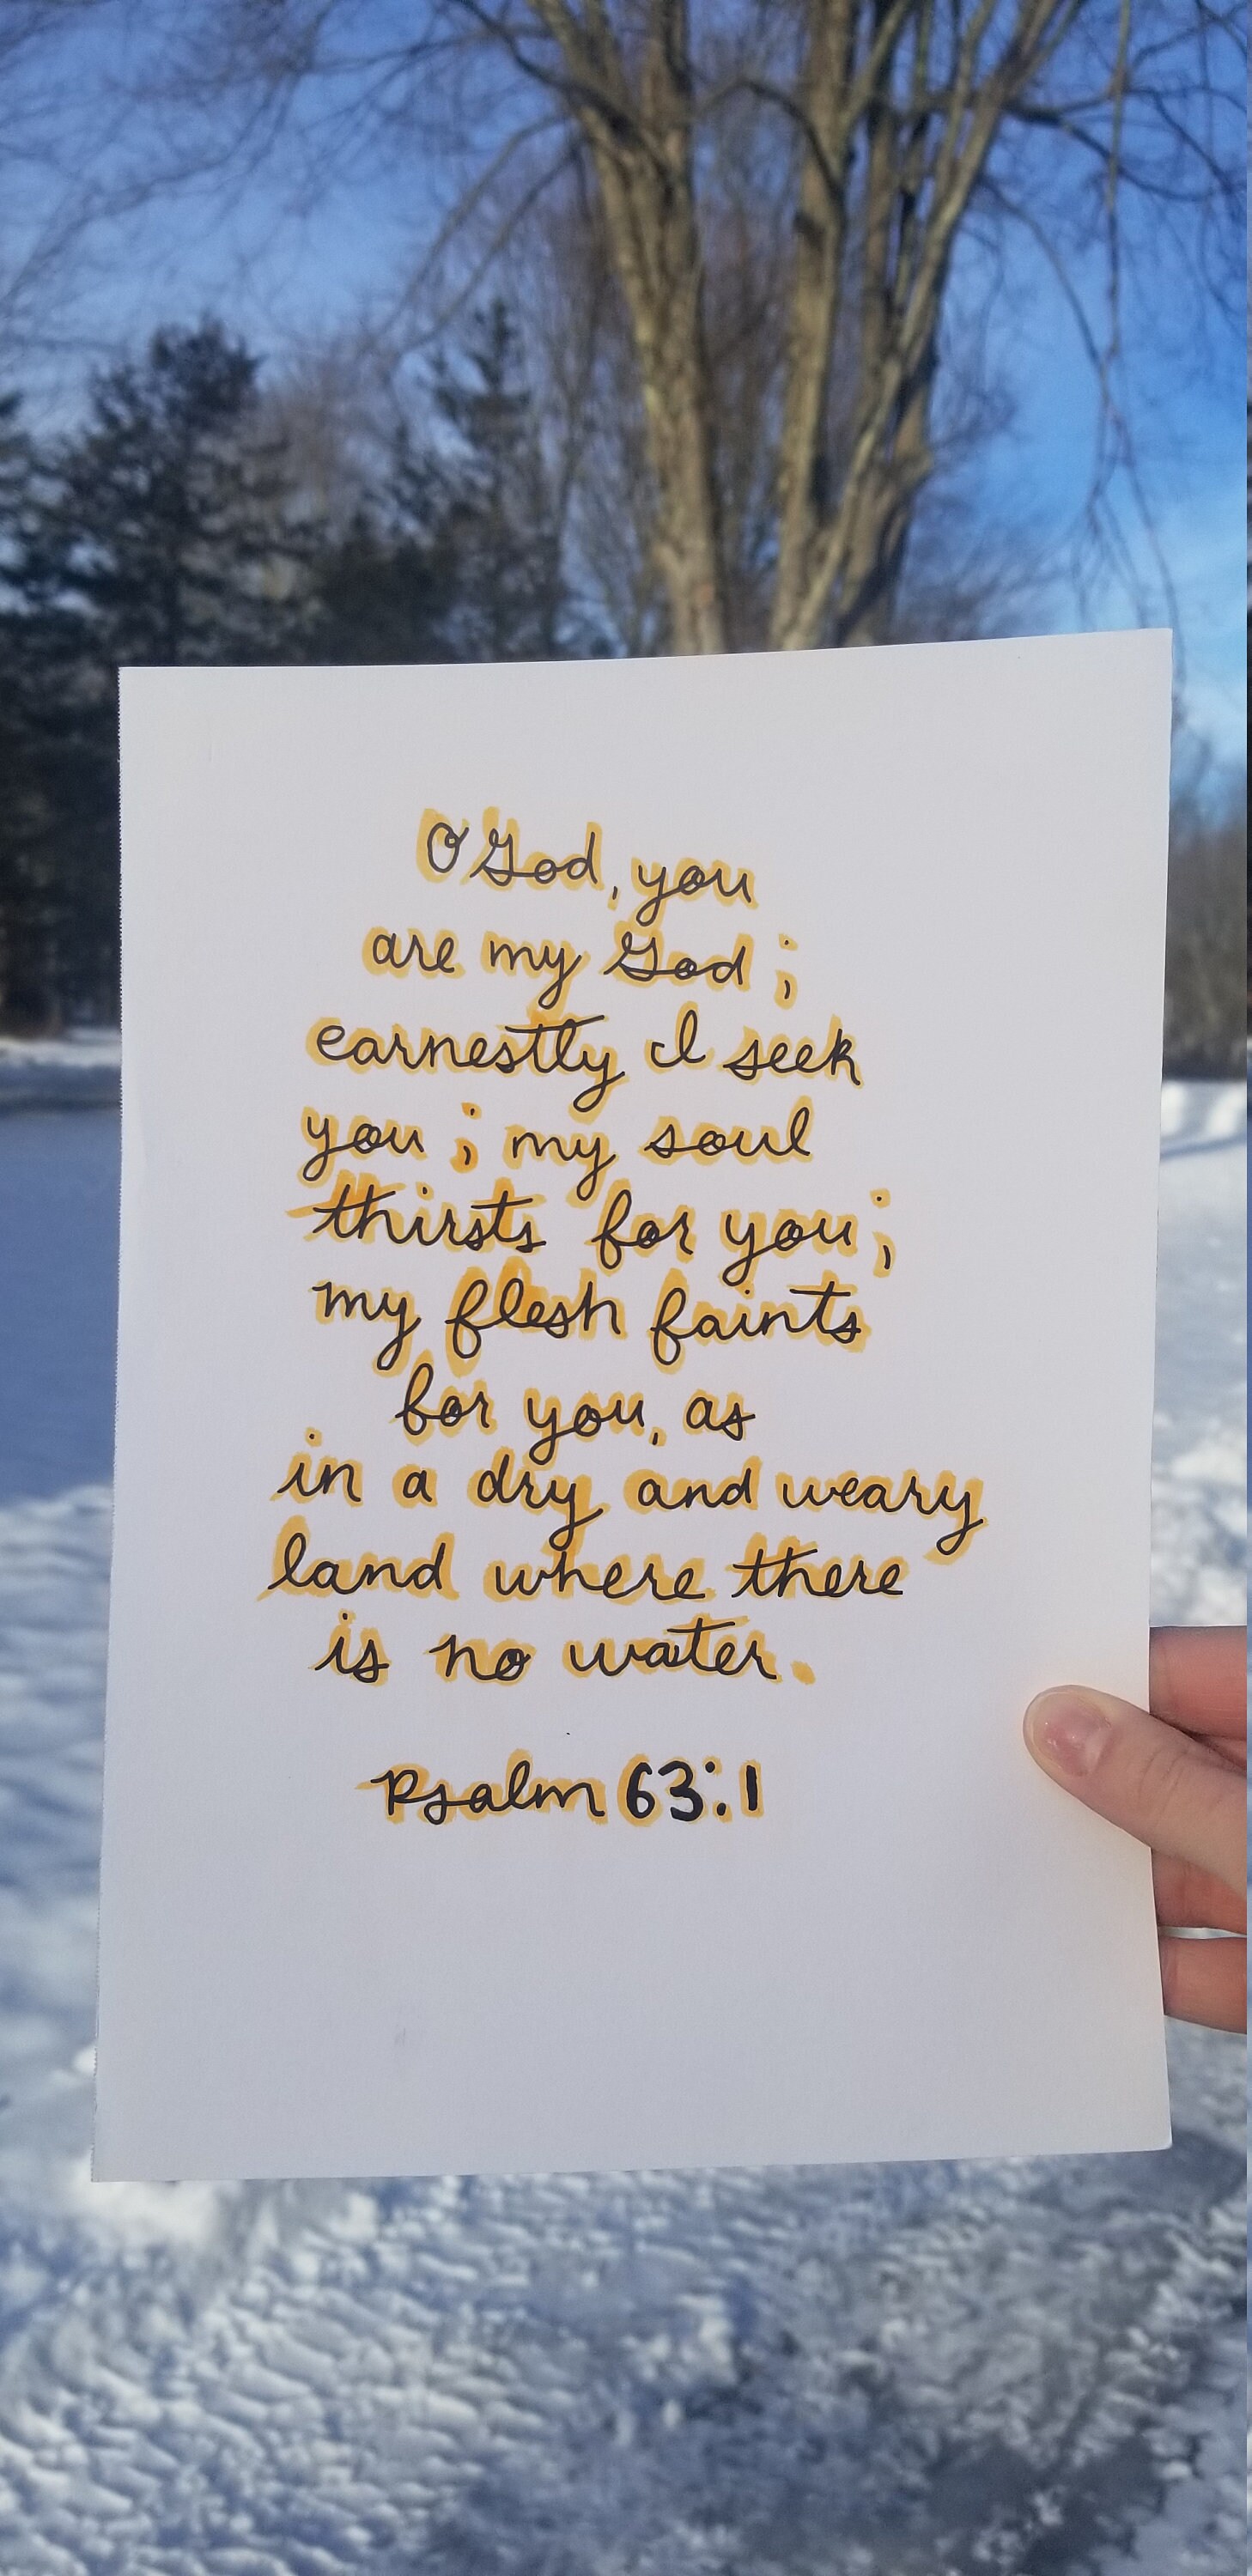 O God, you
are my God;
earnestly I seek
you; my soul
thirsts for you;
my flesh faints
for you, as
in a dry and weary
land where there
is no water.
Psalm 63:1